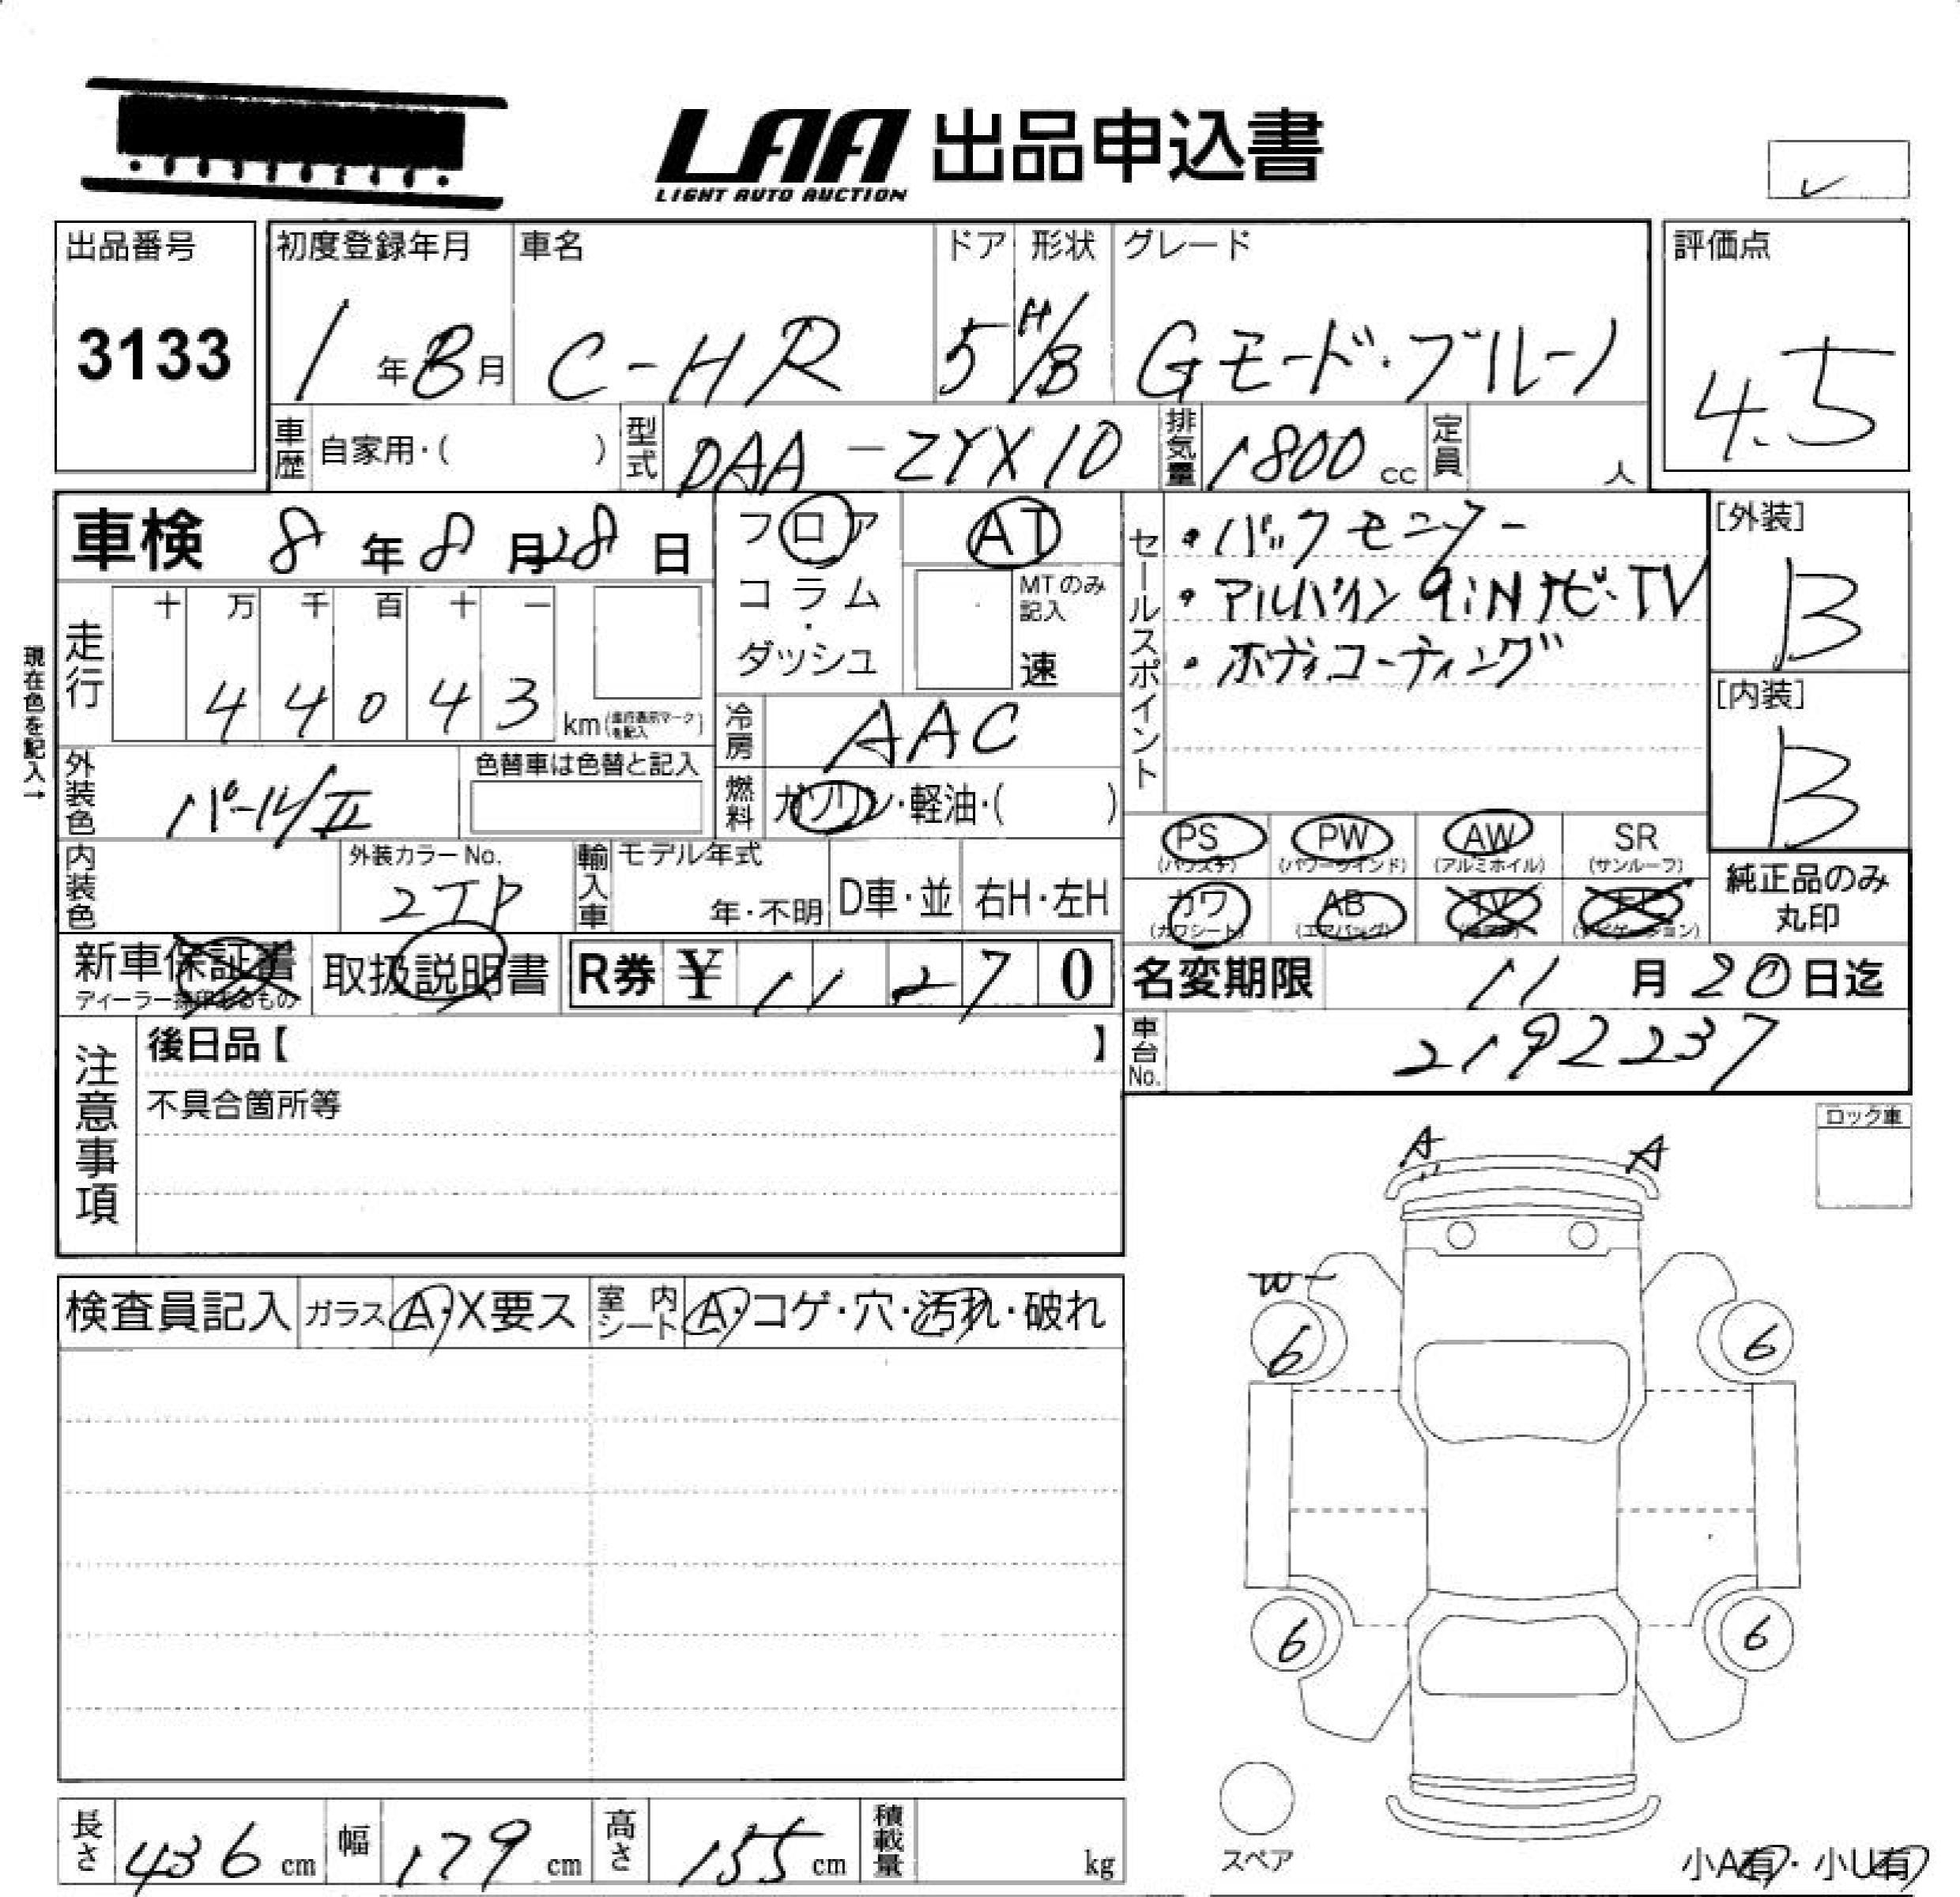 LAA 出品申込書
LIGHT AUTO AUCTION
出品番号
3133
初度登録年月
1年8月
車名
C-HR
ドア
5
形状
H/B
グレード
Gモード・ブルーノ
評価点
4.5
車歴 自家用・( )
型式 DAA-ZYX10
排気量 1800 cc
定員 人
車検 8年8月28日
フロア
コラム
・
ダッシュ
AT
MTのみ記入
速
セールスポイント
・バックモニター
・アルパイン9iNナビ・TV
・ボディコーティング
[外装]
B
[内装]
B
現在色を記入→
走行
十 万 千 百 十 一
4 4 0 4 3 km(走行表示マークを記入)
冷房 AAC
外装色 パールII
色替車は色替と記入
燃料 ガソリン・軽油・( )
PS
(パワステ)
PW
(パワーウインド)
AW
(アルミホイル)
SR
(サンルーフ)
カワ
(カワシート)
AB
(エアバッグ)
TV
純正品のみ
丸印
内装色
外装カラーNo.
2TP
輸入車
モデル年式
年・不明
D車・並
右H・左H
新車保証書
取扱説明書
R券 ¥ 1 1 2 7 0
名変期限 11月20日迄
車台No. 2192237
注意事項
後日品【 】
不具合箇所等
ロック車
A A
W
6 6
6 6
検査員記入 ガラス A・X要ス 室内シート A・コゲ・穴・汚れ・破れ
長さ 436 cm 幅 179 cm 高さ 155 cm 積載量 kg
スペア
小A有・小U有